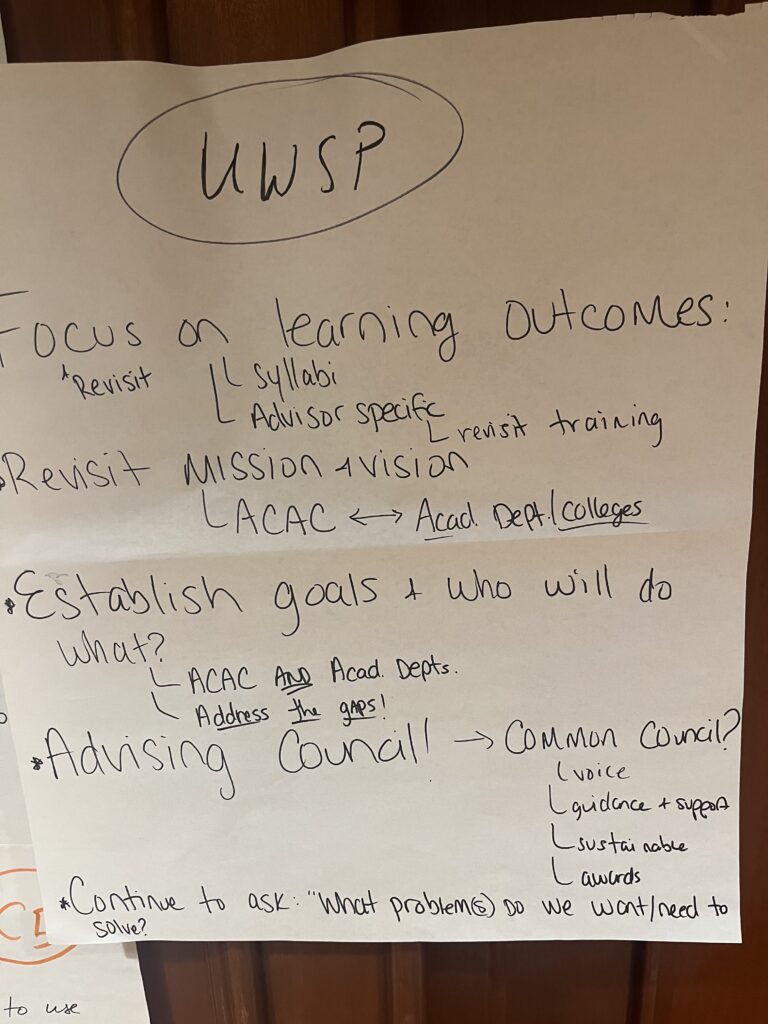 UWSP
Focus on learning outcomes:
*Revisit
Syllabi
Advisor specific
revisit training
Revisit Mission + vision
ACAC ↔ Acad. Dept./Colleges
*Establish goals + who will do
what?
ACAC AND Acad. Depts.
Address the gaps!
*Advising Council! → Common Council?
voice
guidance + support
sustainable
awards
*Continue to ask: "What problem(s) do we want/need to
solve?
to use